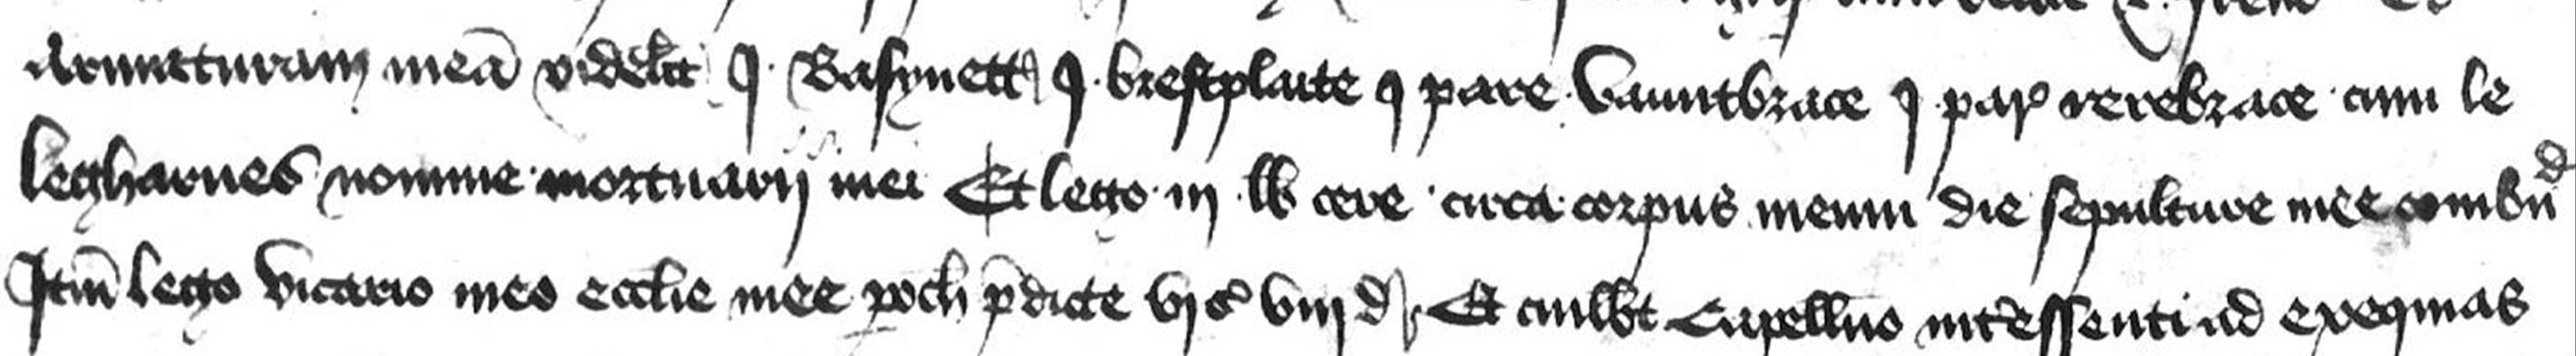 Armaturam meā videlt j Basynett j brestplate j pare Vauntbrace j par rerebrace cum le
legharnes nomine mortuarij mei Et lego iij lb cere circa corpus meum die sepulture mee combuʳᵈ
Itm̄ lego vicario meo ecclie mee poch p̄dicte vjs viijd Et cuilbt Capellno int̄essenti ad exequias